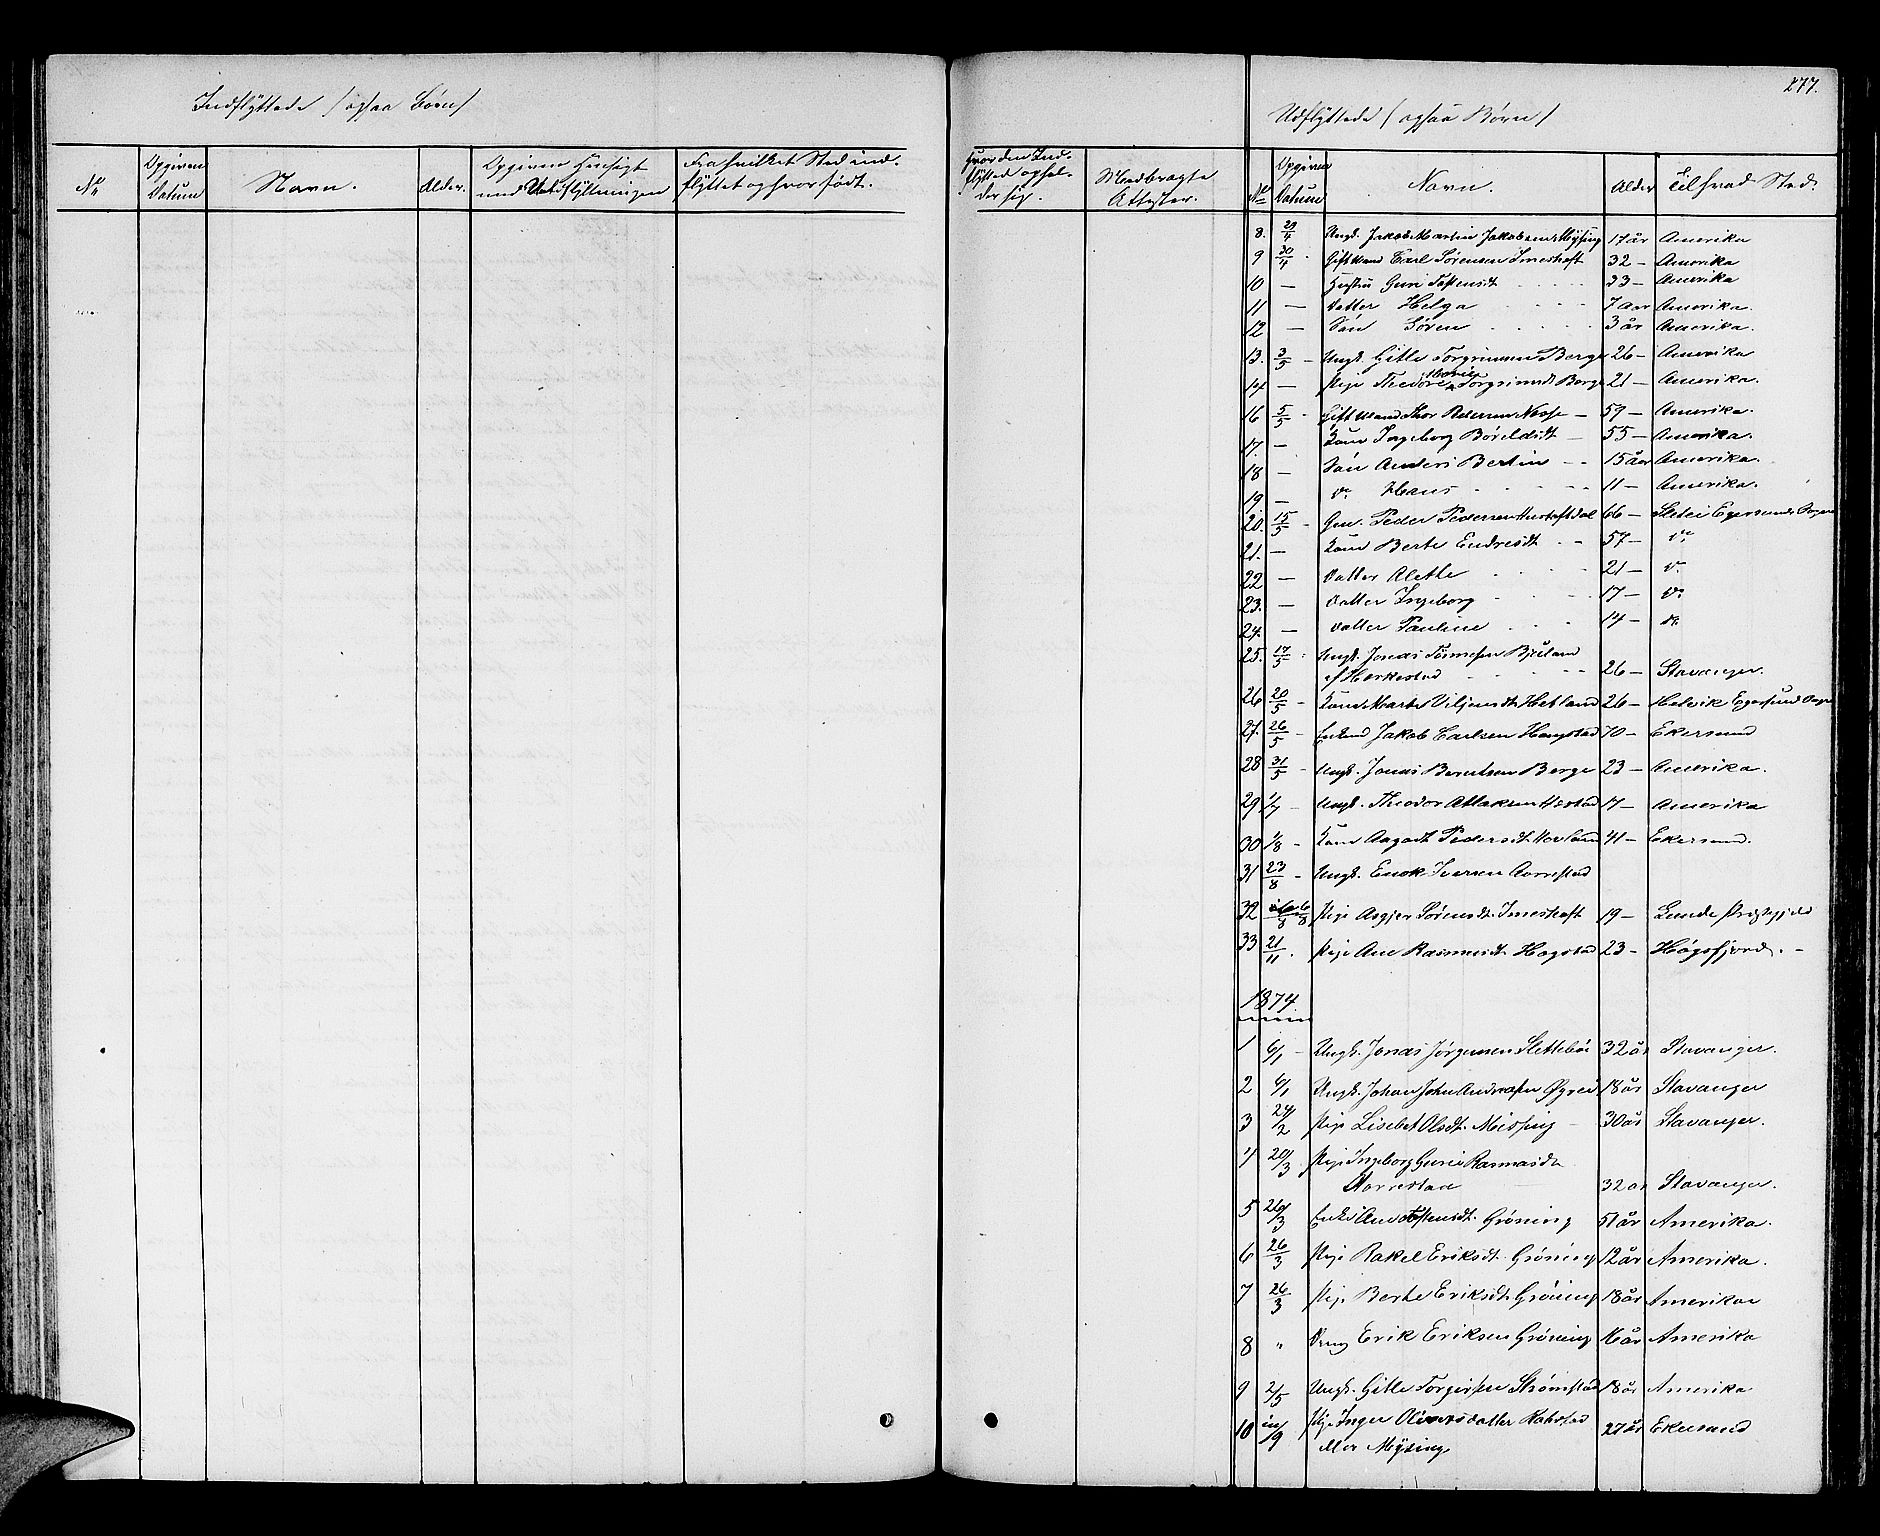 277.
Indflyttede /ogsaa Børn/
Udflyttede /ogsaa Børn/
No
Opgiven Datum
Navn.
Alder.
Opgiven Hensigt med Indflytningen
Fra hvilket Sted indflyttet og hvor født.
Hvor den Indflytted opholder sig.
Medbragte Attester.
No
Opgiven Datum
Navn.
Alder
Til hvad Sted
8. 29/4 Ungk. Jakob Martin Jakobsen Mysing 17 år Amerika
9 30/4 Gift Mand Carl Sørensen Imeshaft 32 — Amerika
10 — Hustru Guri Tostensdt 33 — Amerika
11 — Datter Helga 7 aar Amerika.
12 — Søn Sören 3 år Amerika.
13. 3/5 — Ungk. Gitle Torgrimsen Berge 26 — Amerika
14 — Pige Theodore Marie Torgrimsdt Berge 21 — Amerika.
16 5/5 Gift Mand Thor Pedersen Nesse — 59 — Amerika.
17. — Kone Ingeborg Böreldsdt — 55 — Amerika.
18 — Søn Anders Bertin 15 år Amerika.
19 — do Hans 11 — Amerika.
20. 15/5 Gm. Peder Pedersen 66 — Egersunds Sogn
21. — Kone Berte Endresdt 57 — do
22 — Datter Alette 21 — do
23. — Datter Ingeborg 17 — do
24. — Datter Pauline 14 — do
25. 17/5 Ungk. Jonas Tønnesen Bjuland
af Herkestad 26 — Stavanger.
26 20/5 — Kone Marte Viljemsdt Hetland 26 — Helvik Eggersund Sogn
27. 26/5 — Enkem Jakob Carlsen Hengstad 70 — Ekersund
28 31/5 — Ungk. Jonas Berntsen Berge 23 — Amerika.
29 1/7 — Ungk. Theodor Atlaksen 17 — Amerika
30 1/8 — Kone Aagadt Pedersdt 41 — Ekersund.
31 23/8 — Ungk. Enok Iversen Aarrestad
32 6/8 Pige Asgjer Sørensdt Imeshaft 19 — Lunde Præstegjeld
33 21/11 Pige Ane Rasmusdt Hagstad 23 — Høgsfjord.
1874.
1 6/1 — Ungk. Jonas Jørgensen Slettebøe 32 år Stavanger.
2 6/1 Ungk. Johan John Andreasen Øgrei 18 år Stavanger
3 24/2 Pige Lisebet Olsdt. Missing — 30 år Stavanger.
4 20/3 Pige Ingeborg Gurie Rasmusdt
Aarrestad 32 år Stavanger.
5 26/3 Enke Ane Tostensdt. Grøning 51 år Amerika.
6 26/3 Pige Rakel Eriksdt. Grøning 12 år Amerika.
7 26/3 Pige Berte Eriksdt. Grøning 18 år Amerika
8 " Dreng Erik Eriksen Grøning 16 år Amerika
9 2/5 Ungk. Gitle Torgersen Strømstad 18 år Amerika
10 /9 Pige Inger Oliversdatter Rabstad
eller Mysing 27 år Ekersund